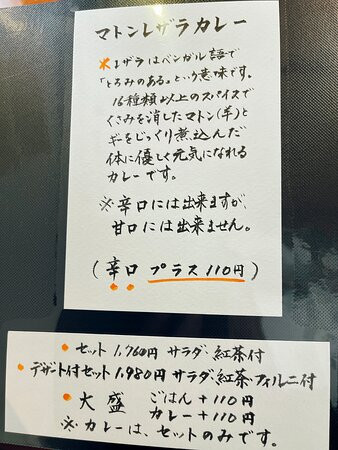 マトンレザラカレー
*レザラはベンガル語で
「とろみのある」という意味です。
16種類以上のスパイスで
くさみを消したマトン(羊)と
ギーをじっくり煮込んだ
体に優しく元気になれる
カレーです。
※辛口には出来ますが、
甘口には出来ません。
(辛口 プラス110円)
・セット 1,760円 サラダ・紅茶付
・デザート付セット 1,980円 サラダ・紅茶・フィルニ付
・大盛 ごはん+110円
カレー+110円
※カレーは、セットのみです。